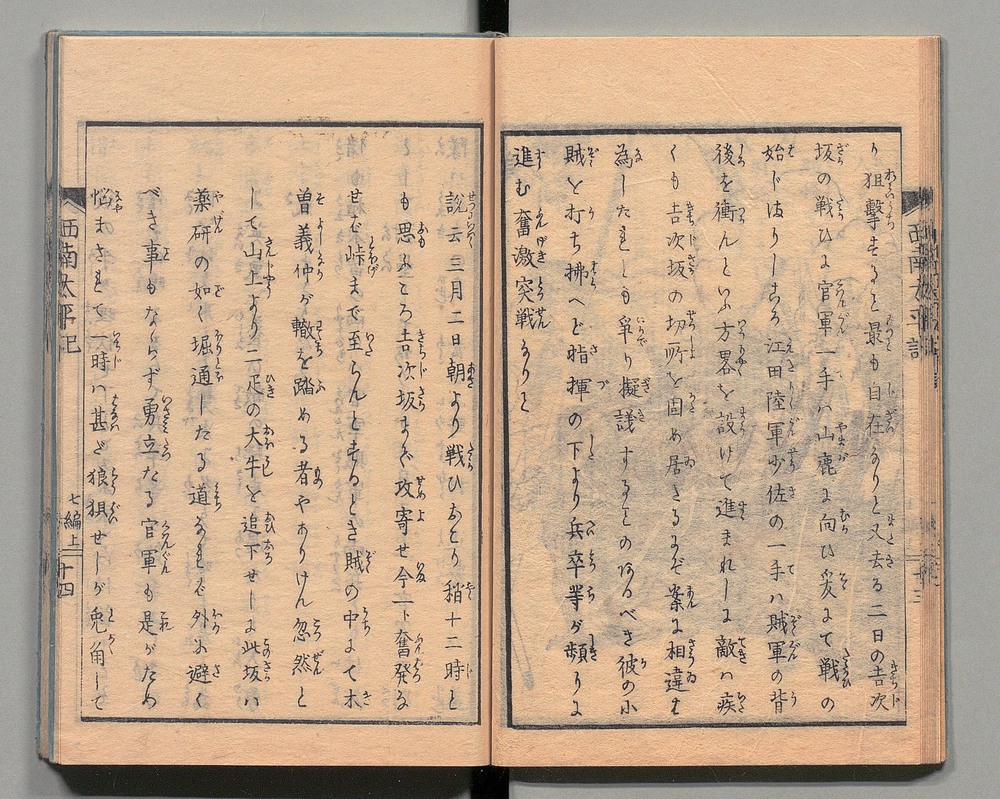 り狙撃するに最も自在なりと又去る二日の吉次
坂の戦ひに官軍一手は山鹿に向ひ爰にて戦の
始りしころ江田陸軍少佐の一手は賊軍の背
後を衝んといふ方畧を設けて進まれしに敵は疾
くも吉次坂の切所を固め居たるなど案に相違
為したれども 擬議するもの あるべき彼の小
賊と打ち拂へど指揮の下より兵卒等が頻りに
進む奮激突戦なりと
説云三月二日朝より戦ひおこり稍十二時と
も思ふころ吉次坂まで攻寄せ今一ト奮発な
せば峠まで至らんとするとき賊の中にて木
曽義仲が轍を踏める者やありけん忽然と
して山上より二疋の大牛を追下せしに此坂は
薬研の如く堀通したる道なれば外に避く
べき事もならず勇立たる官軍も是がため
悩まされて一時は甚だ狼狽せしが兎角して
西南太平記
七編上
十四
西南太平記
十三